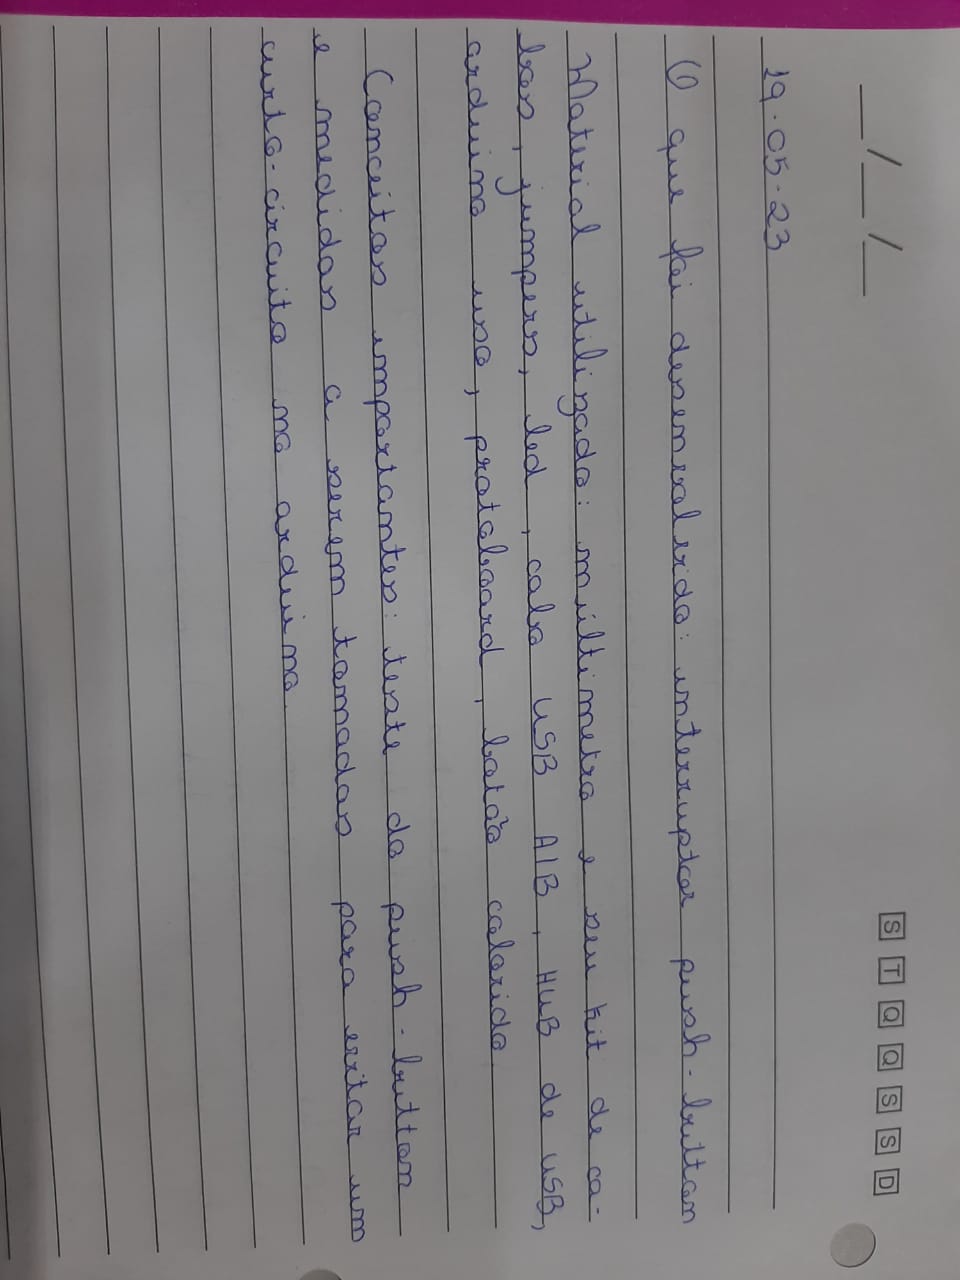 __/__/__
S T Q Q S S D
19.05.23
O que foi desenvolvido: interruptor push-button
Material utilizado: multimetro e seu kit de ca-
bos, jumpers, led, cabo USB A/B, HUB de USB,
arduino uno, protoboard, botão colorido.
Conceitos importantes: teste do push-button
e medidas a serem tomadas para evitar um
curto-circuito no arduino.